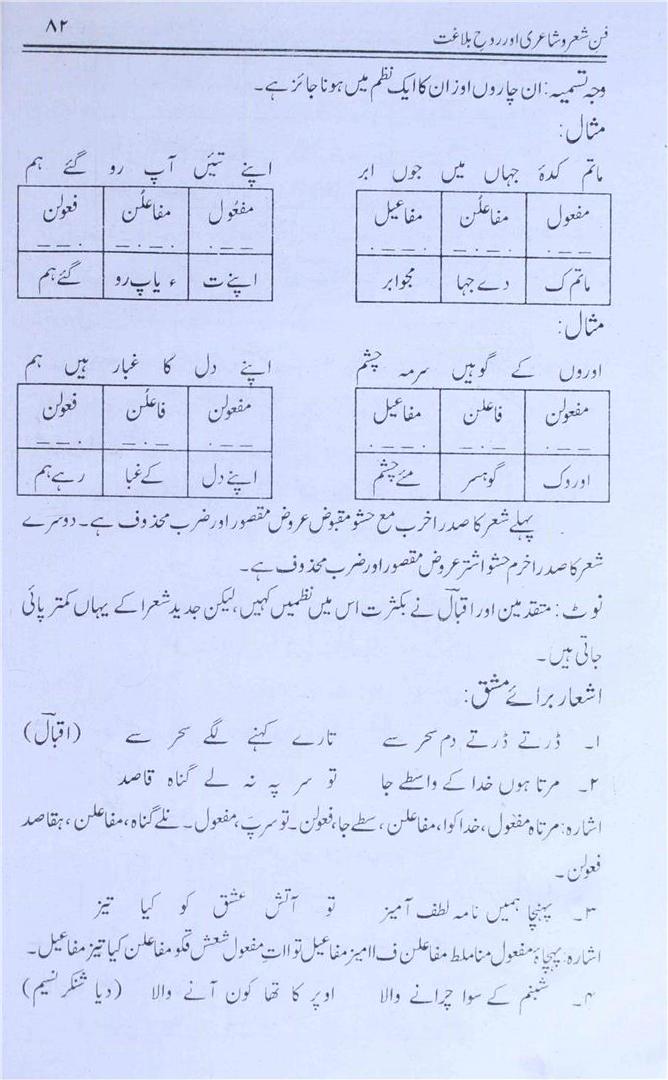 فن شعر و شاعری اور روحِ بلاغت ۸۲
وجہ تسمیہ: ان چاروں اوزان کا ایک نظم میں ہونا جائز ہے۔
مثال:
ماتم کدۂ جہاں میں جوں ابر اپنے تئیں آپ رو گئے ہم
مفعول مفاعلُن مفاعیل مفعُول مفاعلُن فعولن
_ _ . . _ . _ . _ _ . _ _ . . _ . _ . _ _
ماتم ک دے جہا مجوابر اپنے ت ء یاپ رو گئے ہم
مثال:
اوروں کے گو ہیں سرمہ چشم اپنے دل کا غبار ہیں ہم
مفعولن فاعلن مفاعیل مفعولن فاعلُن فعولن
_ _ _ _ . _ . _ _ . _ _ _ _ . _ . _ _
اوروک گوہسر مئے چشم اپنے دل کے غبا رہے ہم
پہلے شعر کا صدر اخرب مع حشو مقبوض عروض مقصور اور ضرب محذوف ہے۔ دوسرے
شعر کا صدر اخرم حشو اشتر عروض مقصور اور ضرب محذوف ہے۔
نوٹ: متقدمین اور اقبالؔ نے بکثرت اس میں نظمیں کہیں، لیکن جدید شعرا کے یہاں کمتر پائی
جاتی ہیں۔
اشعار برائے مشق:
۱۔ ڈرتے ڈرتے دم سحر سے تارے کہنے لگے سحر سے (اقبالؔ)
۲۔ مرتا ہوں خدا کے واسطے جا تو سر پہ نہ لے گناہ قاصد
اشارہ: مرتاہ مفعول، خداکوا، مفاعلن، سطے جا، فعولن۔ تو سرپَ، مفعول۔ نلے گناہ، مفاعلن، ہقاصد
فعولن۔
۳۔ پہنچا ہمیں نامہ لطف آمیز تو آتش عشق کو کیا تیز
اشارہ: پہچاہَ مفعول مناملط مفاعلن ف اامیز مفاعیل تو ااتِ مفعول شعش قکو مفاعلن کیا تیز مفاعیل۔
۴۔ شبنم کے سوا چرانے والا اوپر کا تھا کون آنے والا (دیا شنکر نسیم)